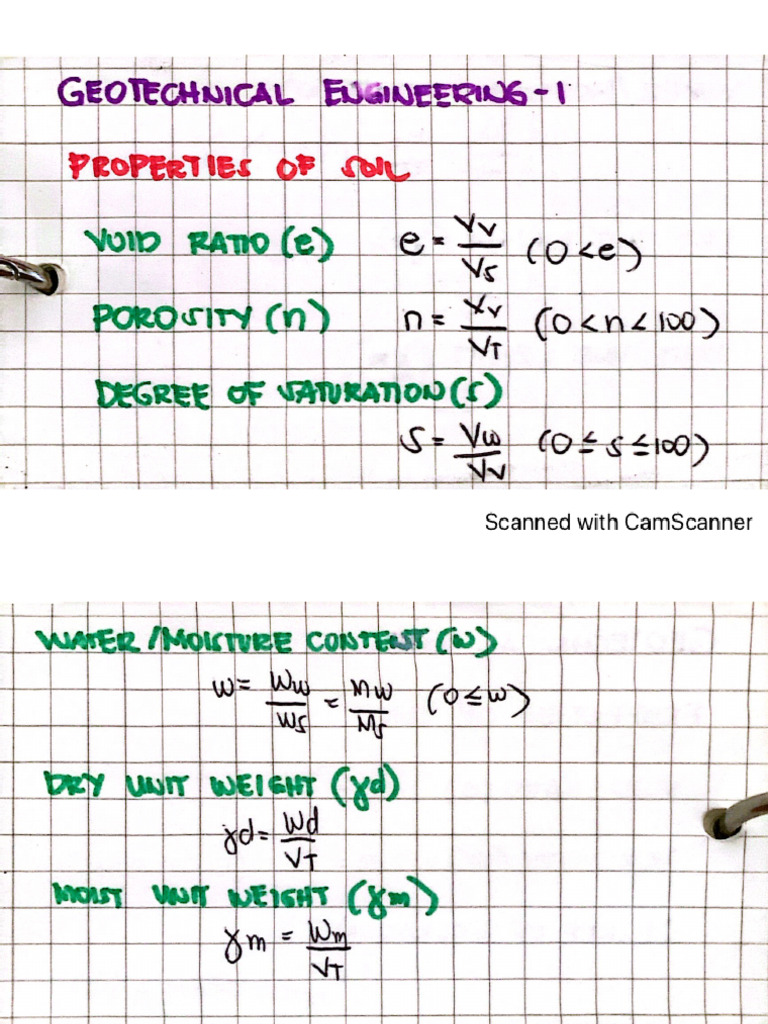 GEOTECHNICAL ENGINEERING - 1
PROPERTIES OF SOIL
VOID RATIO (e) e = Vv/Vs (0 < e)
POROSITY (n) n = Vv/VT (0 < n < 100)
DEGREE OF SATURATION (S)
S = Vw/Vv (0 ≤ S ≤ 100)
Scanned with CamScanner
WATER / MOISTURE CONTENT (w)
w = Ww/Ws = Mw/Ms (0 ≤ w)
DRY UNIT WEIGHT (γd)
γd = Wd/VT
MOIST UNIT WEIGHT (γm)
γm = Wm/VT